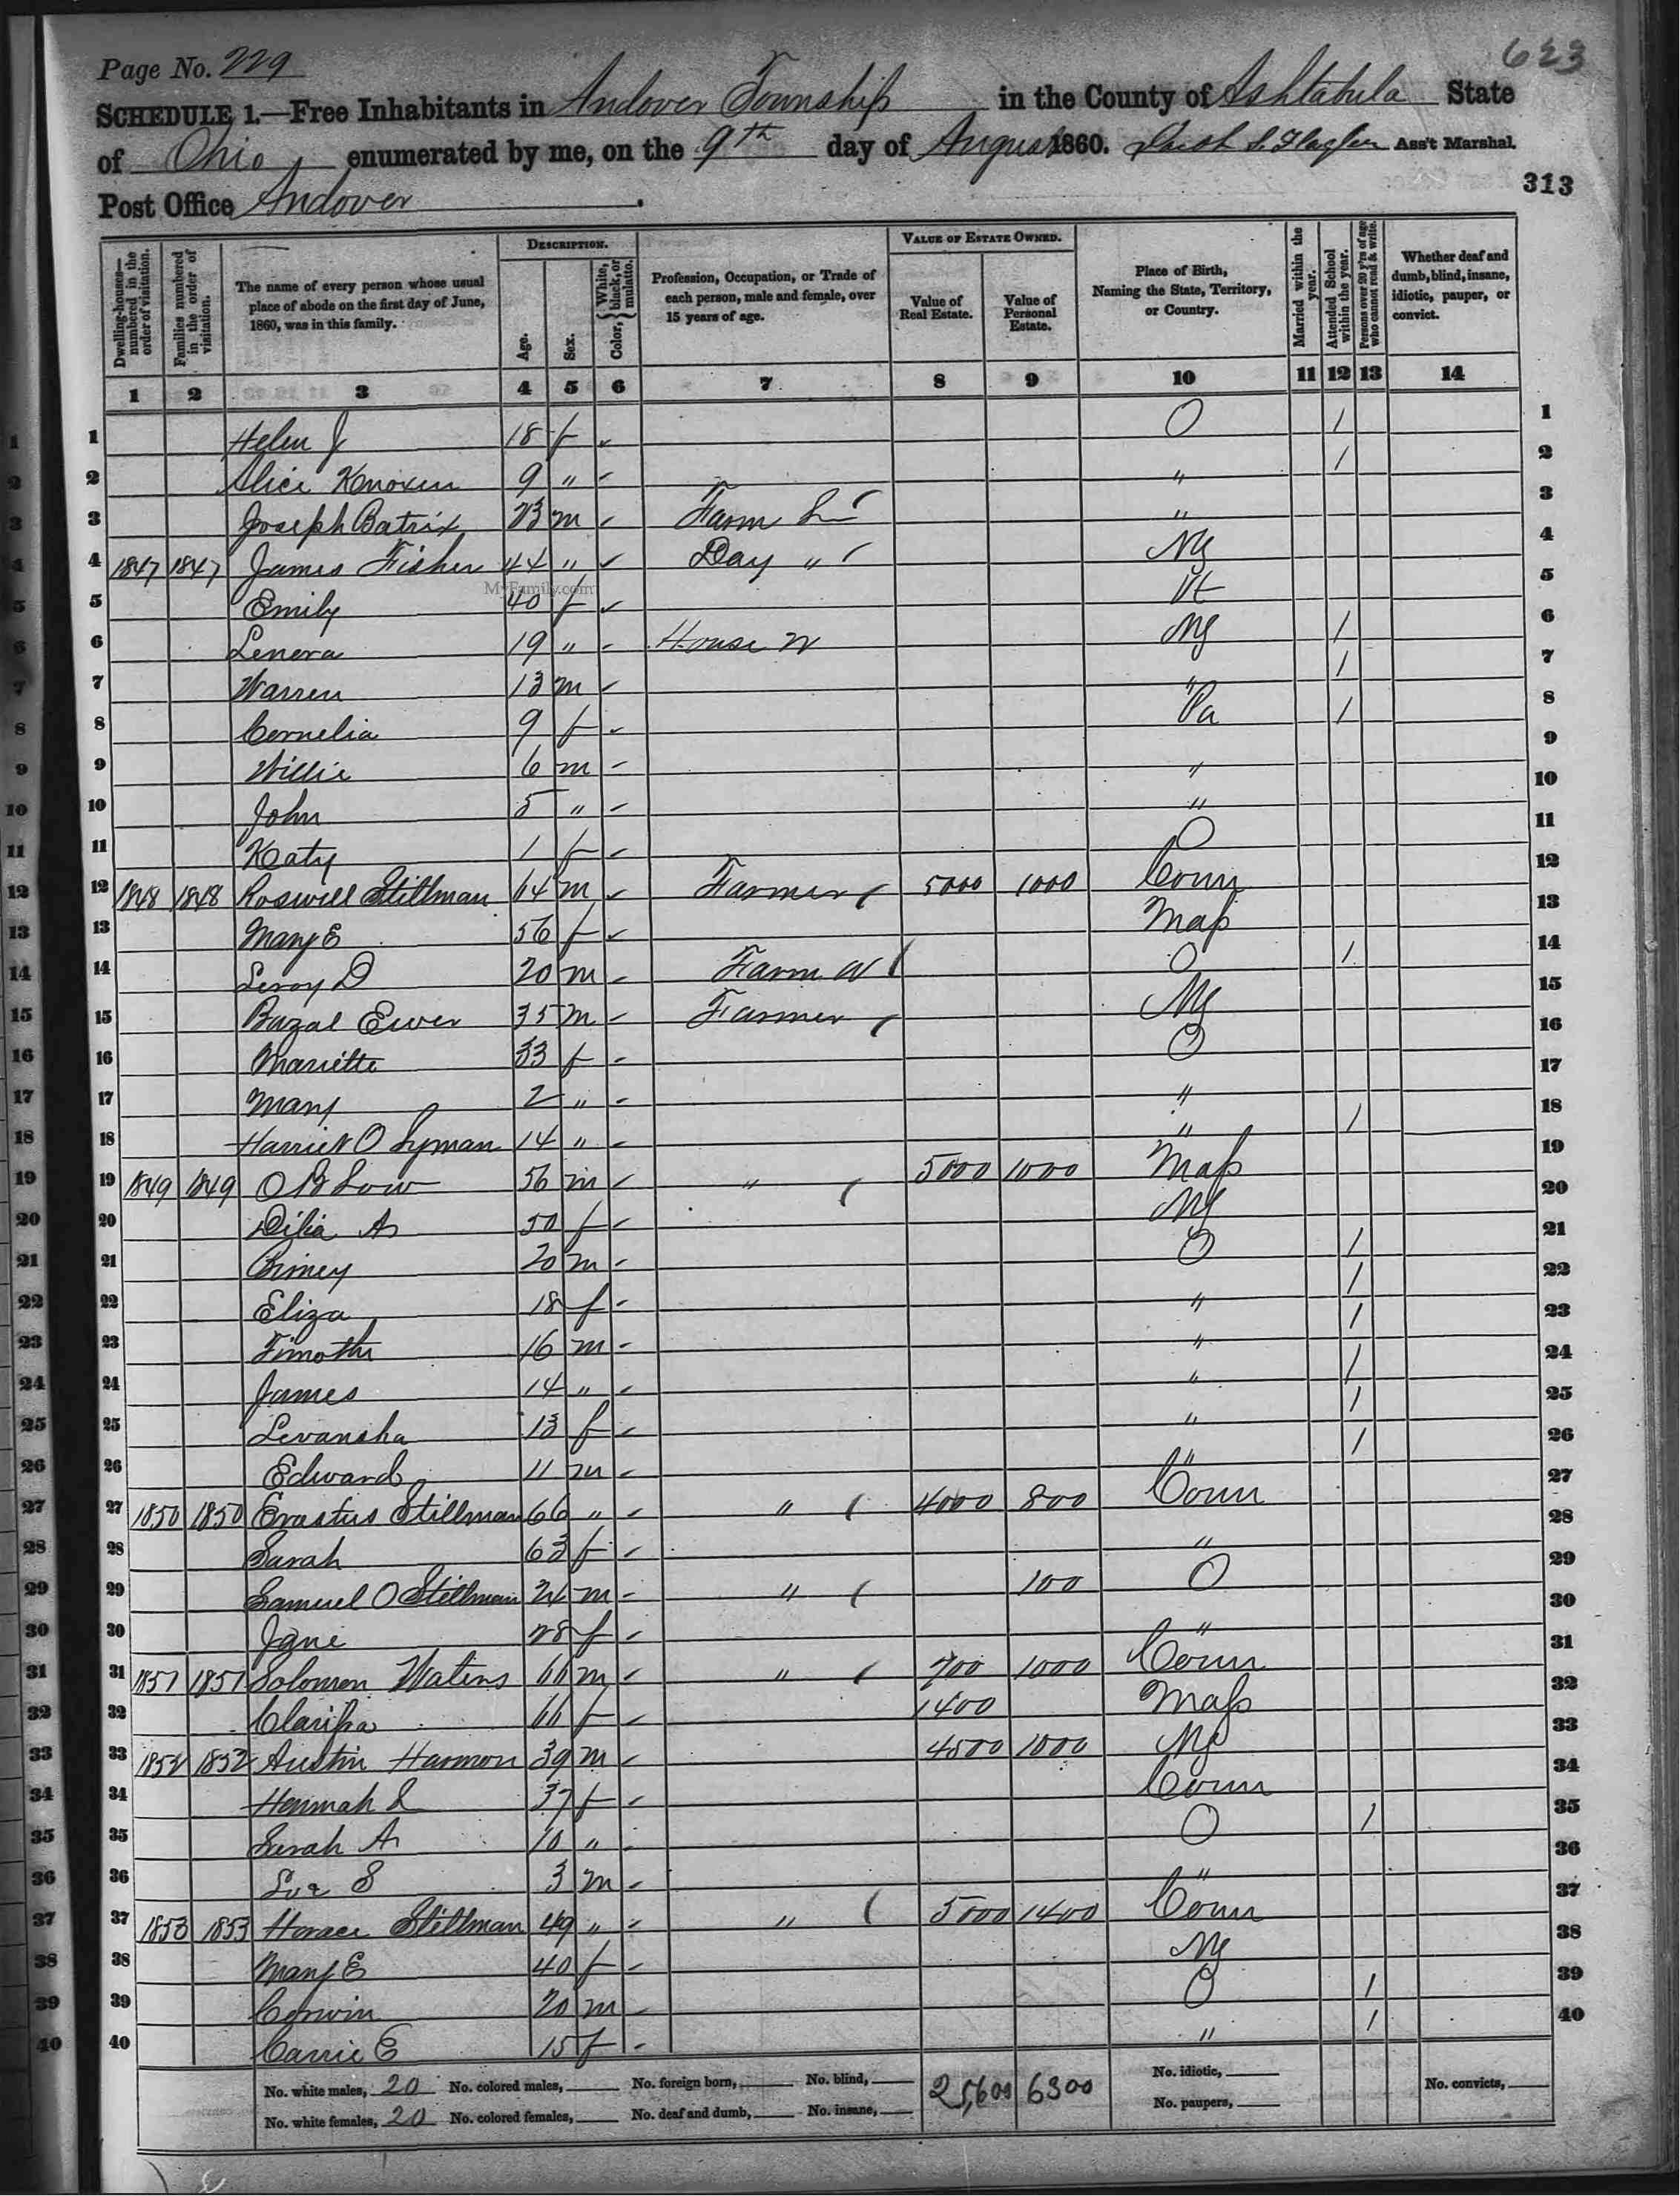 623
Page No. 229
SCHEDULE 1.—Free Inhabitants in Andover Township in the County of Ashtabula State
of Ohio enumerated by me, on the 9th day of August 1860. Ass't Marshal.
313
Post Office Andover.
Dwelling-houses—numbered in the order of visitation. Families numbered in the order of visitation. The name of every person whose usual place of abode on the first day of June, 1860, was in this family. DESCRIPTION. Age. Sex. Color, {White, black, or mulatto. Profession, Occupation, or Trade of each person, male and female, over 15 years of age. VALUE OF ESTATE OWNED. Value of Real Estate. Value of Personal Estate. Place of Birth, Naming the State, Territory, or Country. Married within the year. Attended School within the year. Persons over 20 y'rs of age who cannot read & write. Whether deaf and dumb, blind, insane, idiotic, pauper, or convict.
1 2 3 4 5 6 7 8 9 10 11 12 13 14
1 Helen J 18 f O / 1
2 Alice 9 " " / 2
3 Joseph Batrix 23 m Farm L " 3
4 1847 1847 James Fisher 44 " Day " NY 4
MyFamily.com
5 Emily 40 f Vt 5
6 Lenora 19 " House W NY / 6
7 Warren 13 m " / 7
8 Cornelia 9 f Pa / 8
9 Willie 6 m " 9
10 John 5 " " 10
11 Katy 1 f O 11
12 1848 1848 Roswell Stillman 64 m Farmer 5000 1000 Conn 12
13 Mary E 56 f Mass 13
14 Leroy D 20 m Farm W O / 14
15 Bazal Ewer 35 m Farmer NY 15
16 Mariette 33 f O 16
17 Mary 2 " " 17
18 Harriet O Lyman 14 " " / 18
19 1849 1849 O B Low 56 m " 5000 1000 Mass 19
20 Dilia A 50 f NY 20
21 Birney 20 m O / 21
22 Eliza 18 f " / 22
23 Timothy 16 m " / 23
24 James 14 " " / 24
25 Levansha 13 f " / 25
26 Edward 11 m " / 26
27 1850 1850 Erastus Stillman 66 " " 4000 800 Conn 27
28 Sarah 63 f " 28
29 Samuel O Stillman 24 m " 100 O 29
30 Jane 28 f " 30
31 1851 1851 Solomon Waters 66 m " 700 1000 Conn 31
32 Clarissa 66 f 1400 Mass 32
33 1852 1852 Austin Harmon 39 m 4500 1000 NY 33
34 Hannah L 37 f Conn 34
35 Sarah A 10 " O / 35
36 S 3 m " 36
37 1853 1853 Horace Stillman 49 " " 5000 1400 Conn 37
38 Mary E 40 f NY 38
39 Corwin 20 m O / 39
40 Carrie E 15 f " / 40
No. white males, 20 No. colored males, No. foreign born, No. blind, 25,600 6300 No. idiotic, No. convicts,
No. white females, 20 No. colored females, No. deaf and dumb, No. insane, No. paupers,